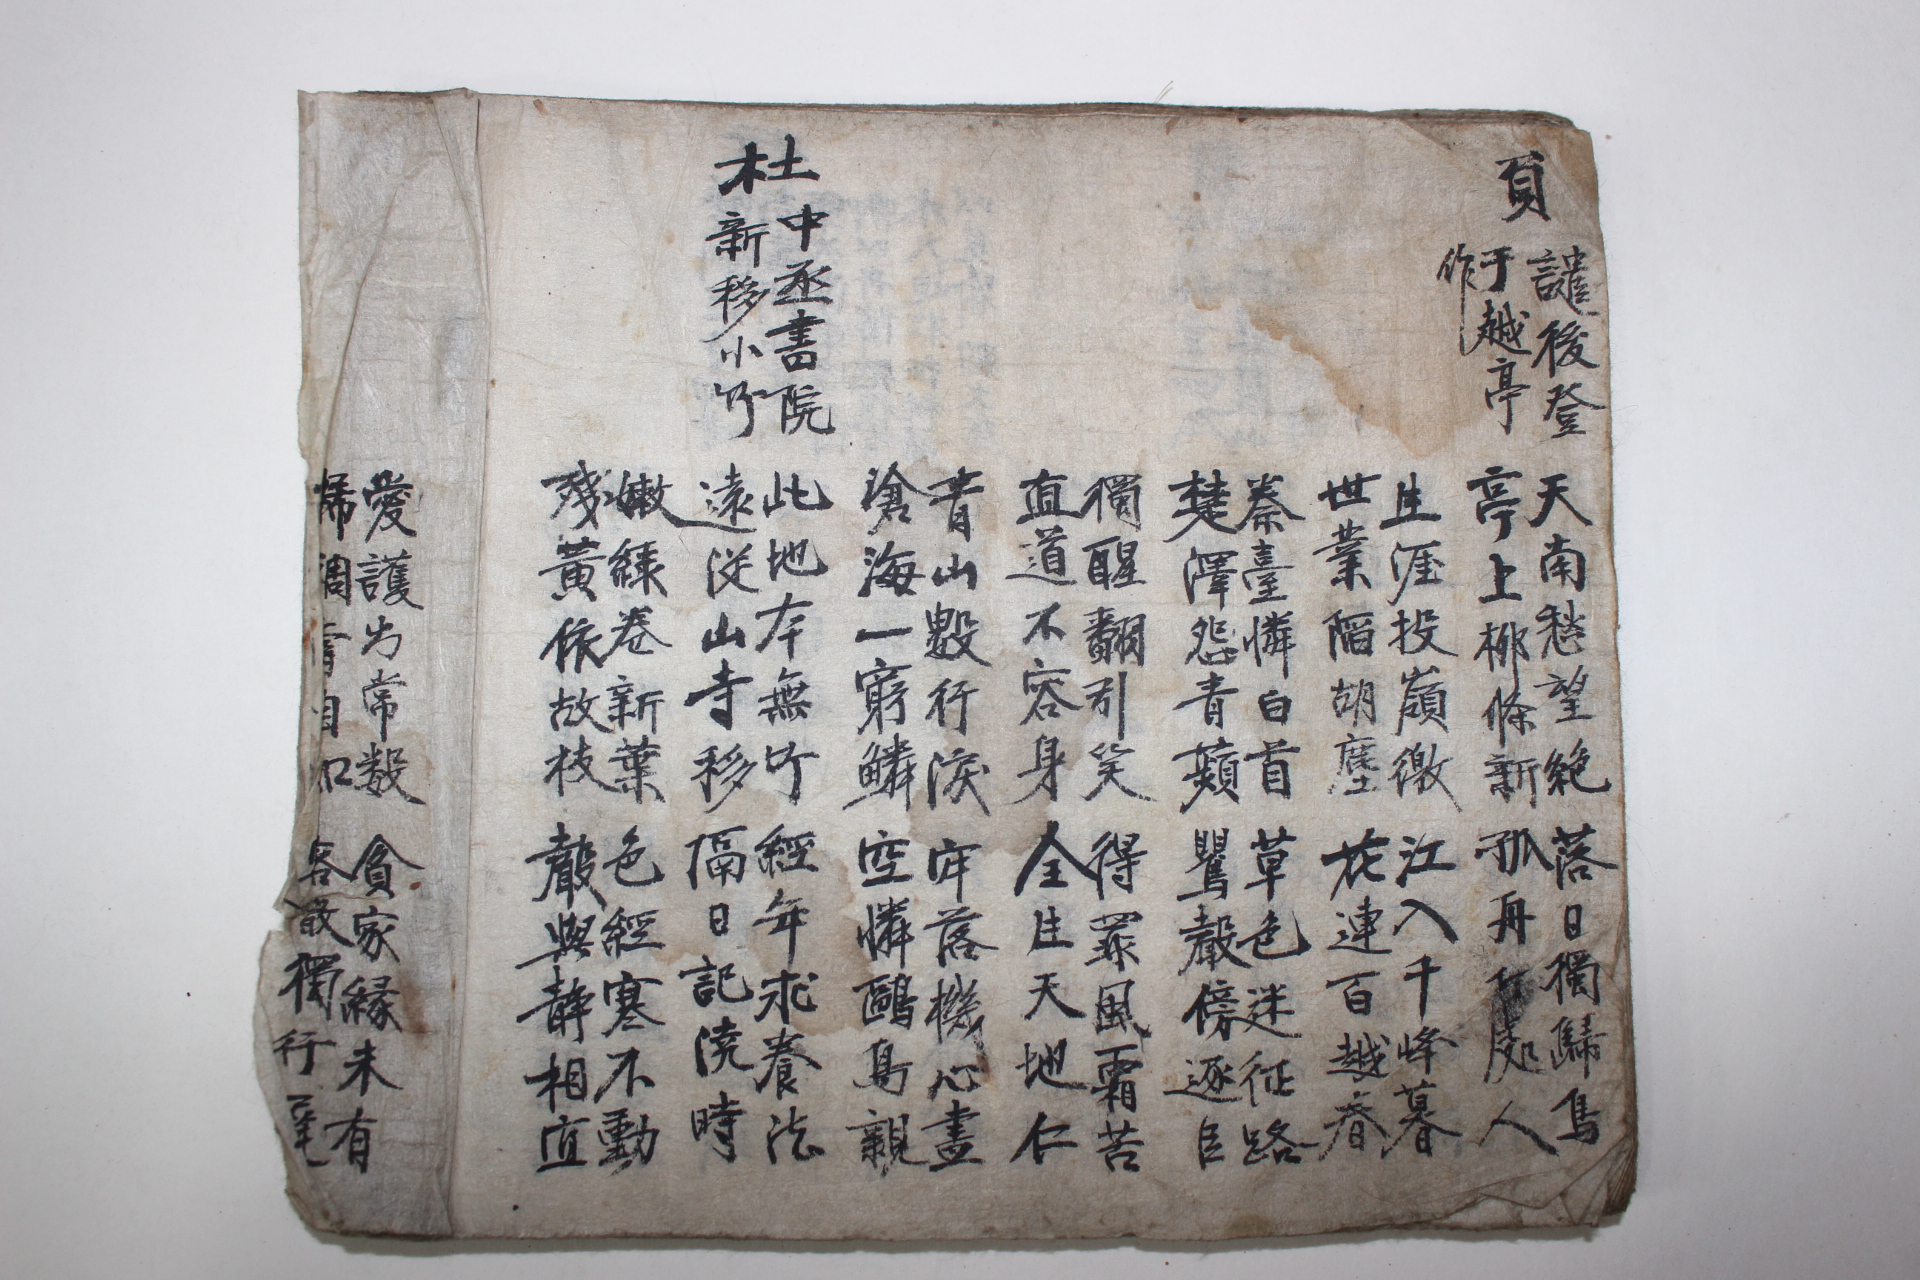 貟
謫後登
于越亭
作
天南愁望絶 落日獨歸鳥
亭上柳條新 孤舟何處人
生涯投嶺徼 江入千峰暮
世業陷胡塵 花連百越春
秦臺憐白首 草色迷征路
楚澤怨青蘋 鶯聲傍逐臣
獨醒翻引笑 得罪風霜苦
直道不容身 全生天地仁
青山數行淚 牢落機心盡
滄海一窮鱗 空憐鷗鳥親
杜
中丞書院
新移小竹
此地本無竹 經年求養法
遠從山寺移 隔日記澆時
嫩綠卷新葉 色經寒不動
殘黃依故枝 聲與靜相宜
愛護出常數 貪家緣未有
稀稠看自知 客散獨行遲